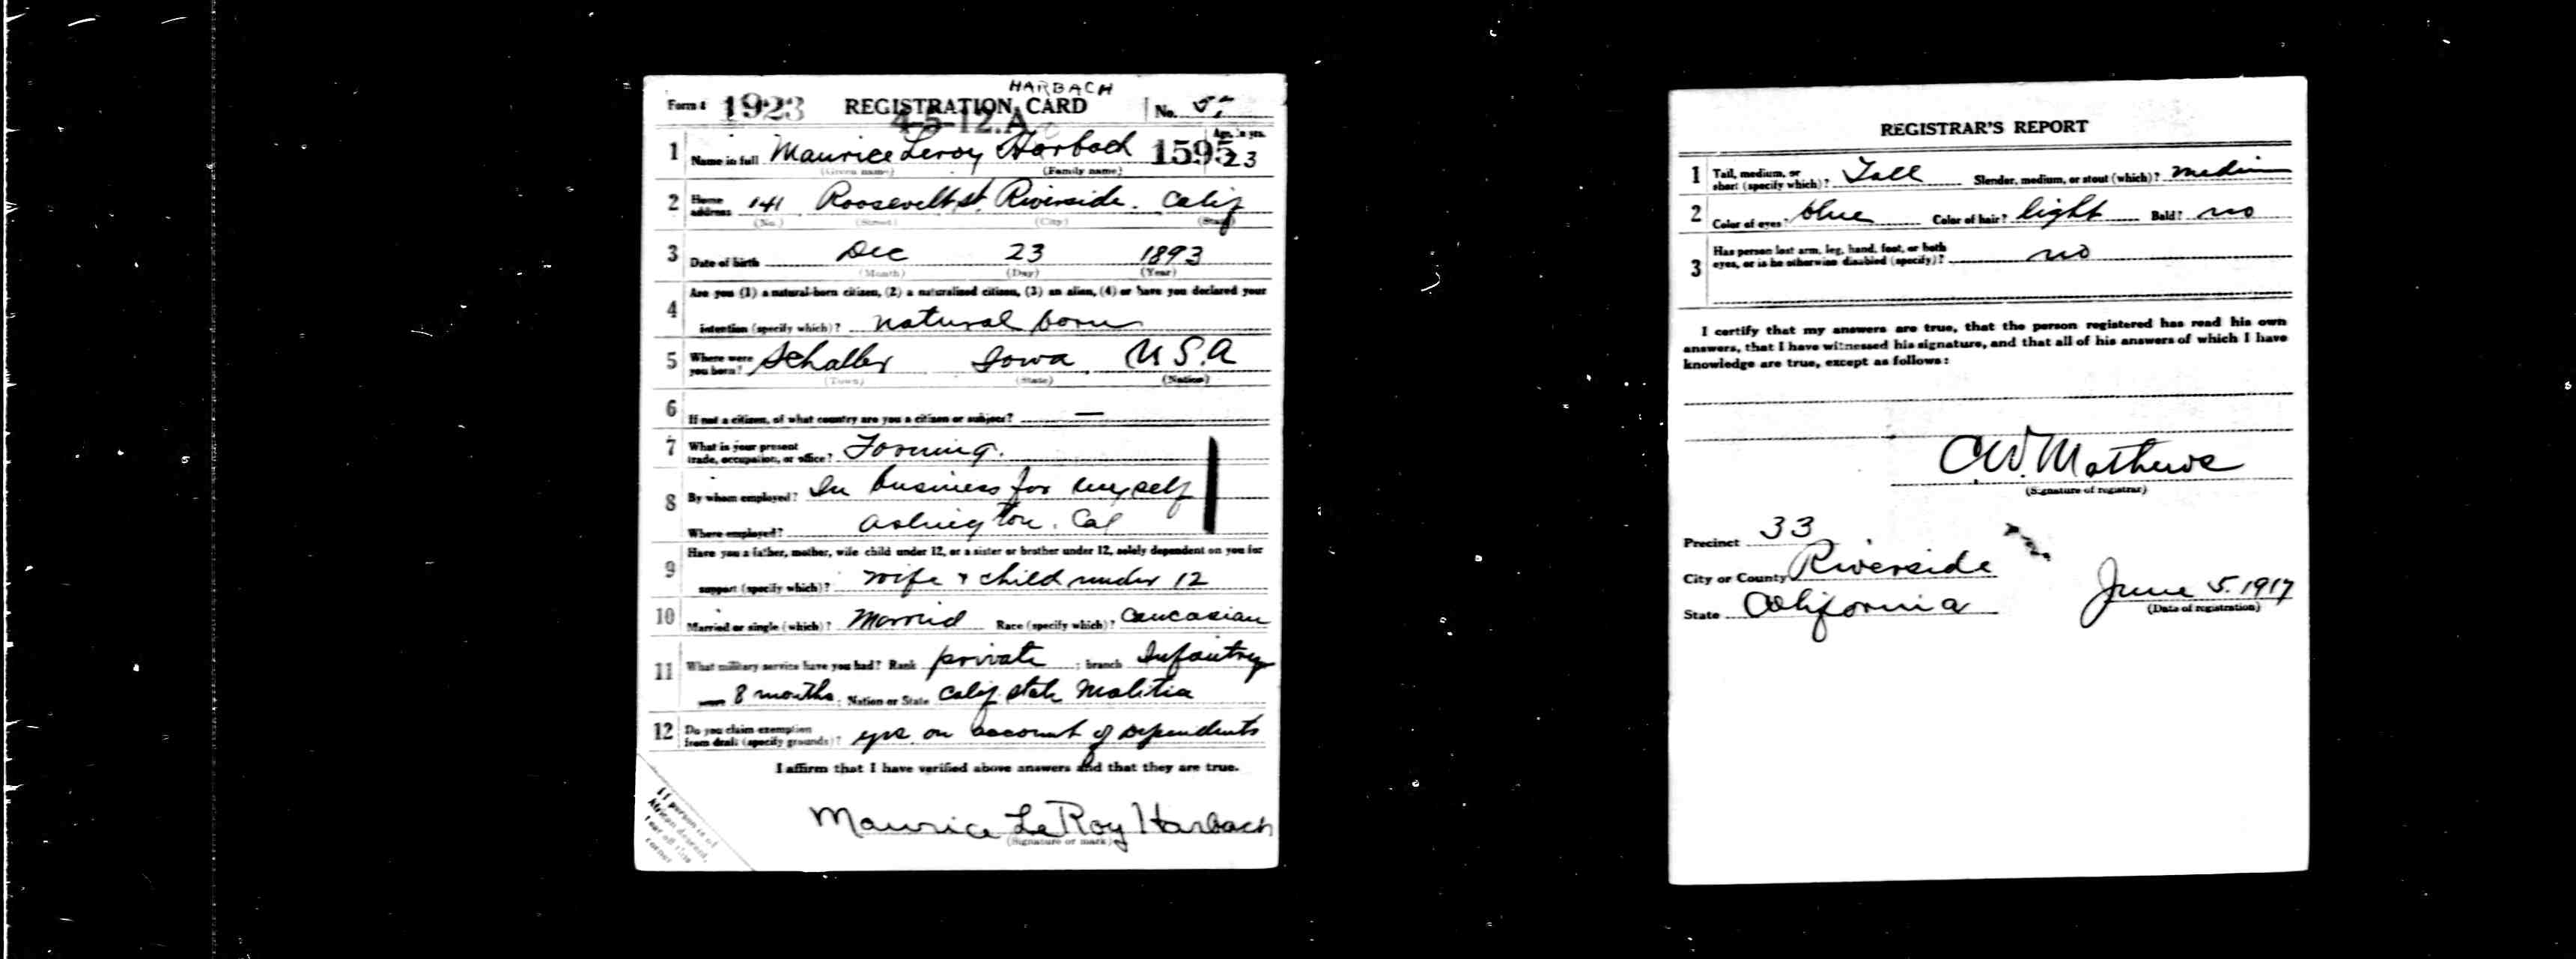 HARBACH
Form 1 1923 REGISTRATION CARD No. 5
4-5-12.A
1 Name in full Maurice Leroy Harbach 1595 Age, in yrs. 23
(Given name) (Family name)
2 Home address 141 Roosevelt st. Riverside. Calif
(No.) (Street) (City) (State)
3 Date of birth Dec 23 1893
(Month) (Day) (Year)
4 Are you (1) a natural-born citizen, (2) a naturalized citizen, (3) an alien, (4) or have you declared your
intention (specify which)? natural born
5 Where were you born? Schaller Iowa U S.A
(Town) (State) (Nation)
6 If not a citizen, of what country are you a citizen or subject? —
7 What is your present trade, occupation, or office? Farming.
8 By whom employed? In business for myself
Where employed? Cal
9 Have you a father, mother, wife child under 12, or a sister or brother under 12, solely dependent on you for
support (specify which)? wife & child under 12
10 Married or single (which)? Married Race (specify which)? Caucasian
11 What military service have you had? Rank private ; branch Infantry
8 months ; Nation or State Calif. state Malitia
12 Do you claim exemption from draft (specify grounds)? yes. on account of Dependents
I affirm that I have verified above answers and that they are true.
Maurice LeRoy Harbach
(Signature or mark)
If person is of
African descent,
tear off this
corner
REGISTRAR'S REPORT
1 Tall, medium, or short (specify which)? Tall Slender, medium, or stout (which)? medium
2 Color of eyes? blue Color of hair? light Bald? no
3 Has person lost arm, leg, hand, foot, or both
eyes, or is he otherwise disabled (specify)? no
I certify that my answers are true, that the person registered has read his own
answers, that I have witnessed his signature, and that all of his answers of which I have
knowledge are true, except as follows:
C.W. Mathews
(Signature of registrar)
Precinct 33
City or County Riverside
State California
June 5. 1917
(Date of registration)